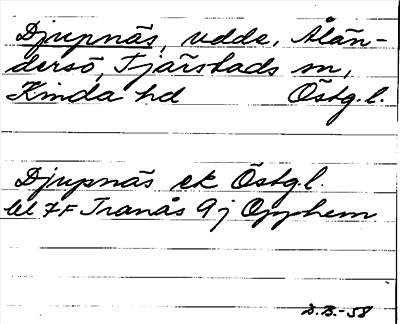 Djupnäs, udde, Ålän-
dersö, Tjärstads sn,
Kinda hd Östg.l.
Djupnäs ek Östg.l.
bl 7F Tranås 9j Opphem
D.B.-58